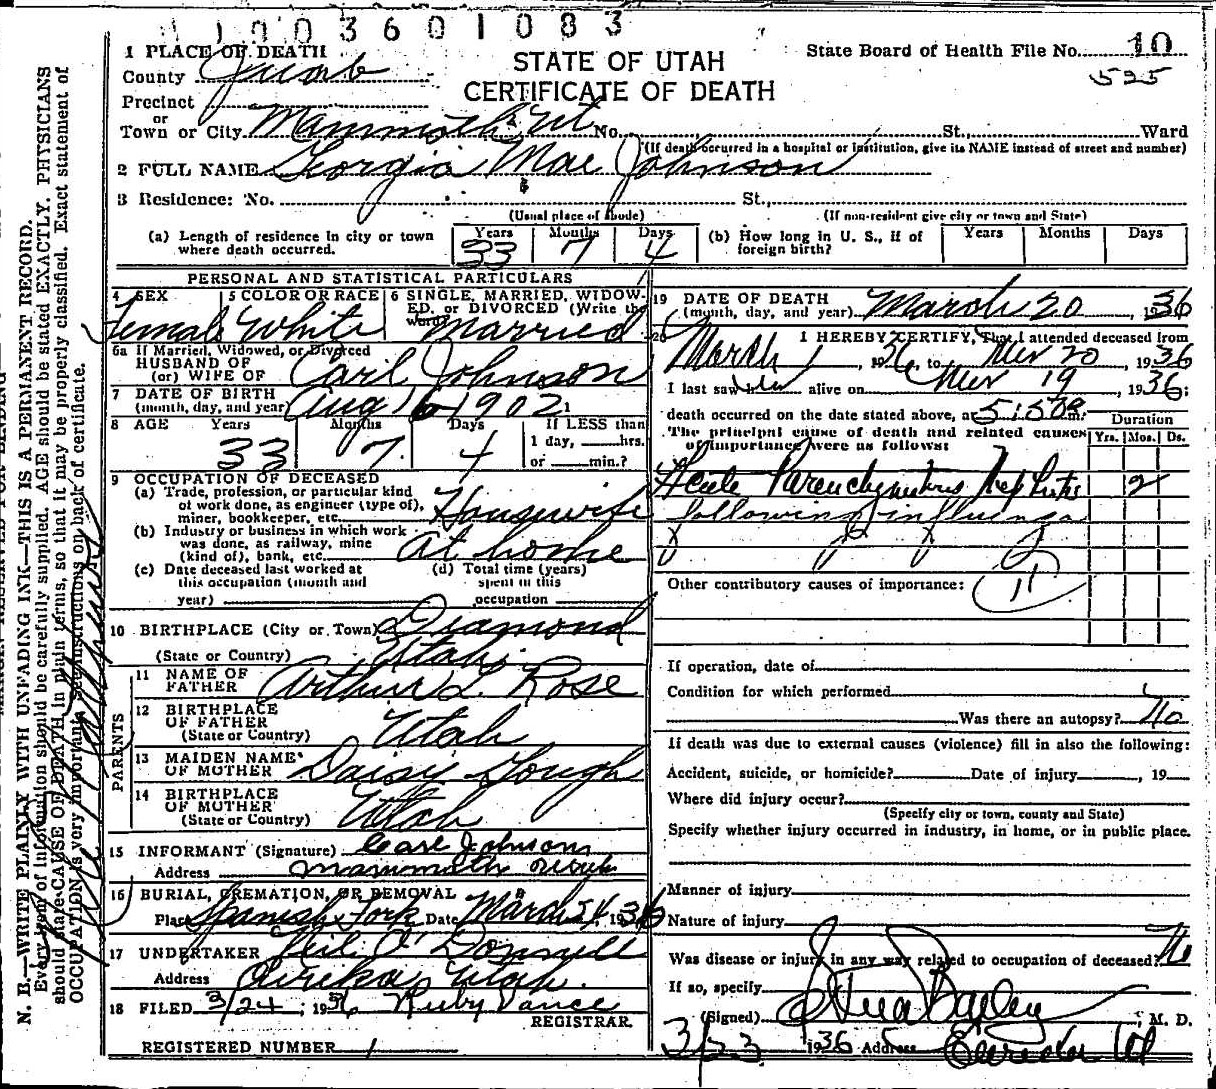 1003601083
1 PLACE OF DEATH
STATE OF UTAH
CERTIFICATE OF DEATH
State Board of Health File No. 10
525
County Juab
Precinct
or
Town or City Mammoth Ut No. St., Ward
(If death occurred in a hospital or institution, give its NAME instead of street and number)
2 FULL NAME Georgia Mae Johnson
3 Residence: No. St.,
(Usual place of abode) (If non-resident give city or town and State)
(a) Length of residence in city or town where death occurred. Years 33 Months 7 Days 4
(b) How long in U. S., if of foreign birth? Years Months Days
PERSONAL AND STATISTICAL PARTICULARS
4 SEX Female
5 COLOR OR RACE White
6 SINGLE, MARRIED, WIDOWED, or DIVORCED (Write the word) Married
6a If Married, Widowed, or Divorced
HUSBAND OF
(or) WIFE OF Carl Johnson
7 DATE OF BIRTH
(month, day, and year) Aug 16 1902
8 AGE Years 33 Months 7 Days 4
If LESS than
1 day, hrs.
or min.?
9 OCCUPATION OF DECEASED
(a) Trade, profession, or particular kind
of work done, as engineer (type of),
miner, bookkeeper, etc. Housewife
(b) Industry or business in which work
was done, as railway, mine
(kind of), bank, etc. At home
(c) Date deceased last worked at
this occupation (month and
year)
(d) Total time (years)
spent in this
occupation
10 BIRTHPLACE (City or Town) Diamond
(State or Country) Utah
PARENTS
11 NAME OF
FATHER Arthur L. Rose
12 BIRTHPLACE
OF FATHER
(State or Country) Utah
13 MAIDEN NAME
OF MOTHER Daisy Gough
14 BIRTHPLACE
OF MOTHER
(State or Country) Utah
15 INFORMANT (Signature) Carl Johnson
Address Mammoth Utah
16 BURIAL, CREMATION, OR REMOVAL
Place Spanish Fork Date March 24, 1936
17 UNDERTAKER Neil O'Donnell
Address Eureka Utah.
18 FILED 3/24, 1936 Ruby Vance
REGISTRAR
REGISTERED NUMBER 1
19 DATE OF DEATH
(month, day, and year) March 20, 1936
20 I HEREBY CERTIFY, That I attended deceased from
March 1, 1936, to Mar 20, 1936
I last saw her alive on Mar 19, 1936;
death occurred on the date stated above, at 5:50 m.
The principal cause of death and related causes
of importance were as follows:
Duration
Yrs. Mos. Ds.
Acute Parenchymatous Nephritis 2
following influenza
Other contributory causes of importance: 11
If operation, date of
Condition for which performed
Was there an autopsy? No
If death was due to external causes (violence) fill in also the following:
Accident, suicide, or homicide? Date of injury , 19
Where did injury occur?
(Specify city or town, county and State)
Specify whether injury occurred in industry, in home, or in public place.
Manner of injury
Nature of injury
Was disease or injury in any way related to occupation of deceased? No
If so, specify
(Signed) Bailey, M. D.
3/23 1936 Address Eureka Ut
N. B.—WRITE PLAINLY WITH UNFADING INK—THIS IS A PERMANENT RECORD.
Every item of information should be carefully supplied. AGE should be stated EXACTLY. PHYSICIANS
should state CAUSE OF DEATH in plain terms, so that it may be properly classified. Exact statement of
OCCUPATION is very important. See instructions on back of certificate.